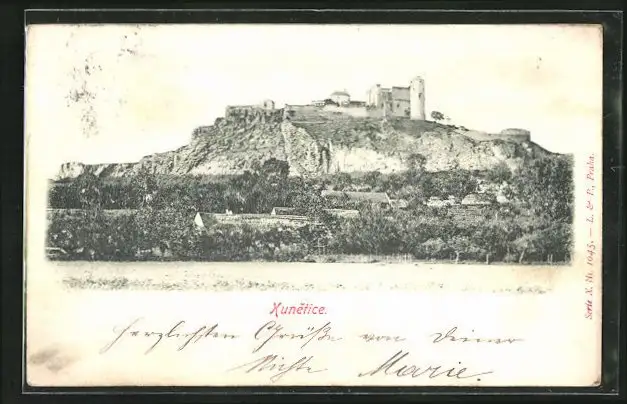 Kunětice.
Herzlichsten Grüße von Deiner
Nichte Marie.
Serie X. Nr. 1045. — L. & P., Praha.